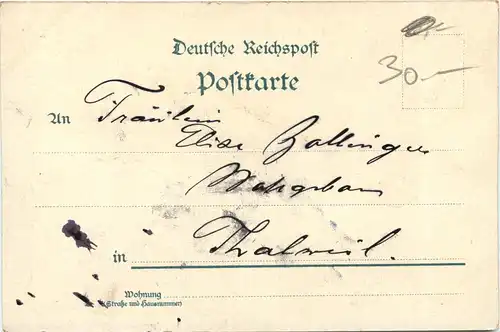 Deutsche Reichspost
Postkarte
30.—
An Fräulein
Elise Bollinger
in Thalwil.
Wohnung
(Straße und Hausnummer)